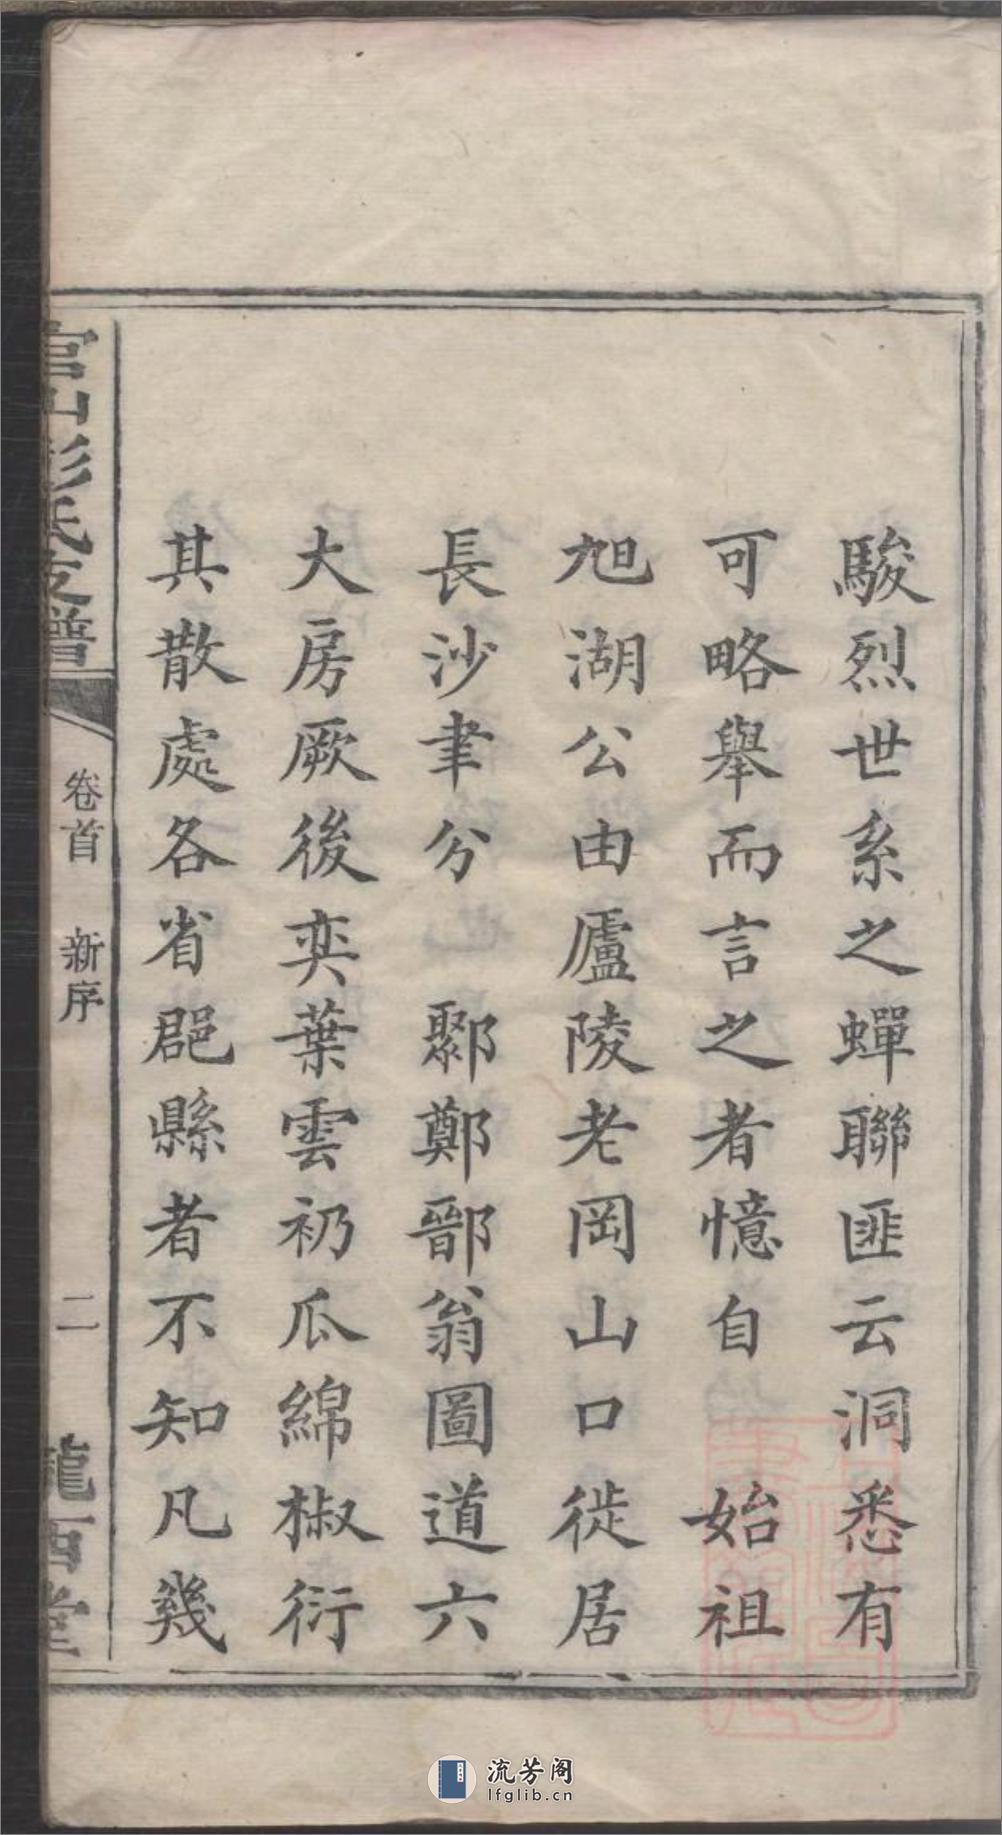 駿烈世系之蟬聯匪云洞悉有
可略舉而言之者憶自 始祖
旭湖公由廬陵老岡山口徙居
長沙聿分 鄹鄭鄑翁圖道六
大房厥後奕葉雲礽瓜綿椒衍
其散處各省郡縣者不知凡幾
官山彭氏支譜
卷首 新序
二
龍西堂
流芳阁
lfglib.cn